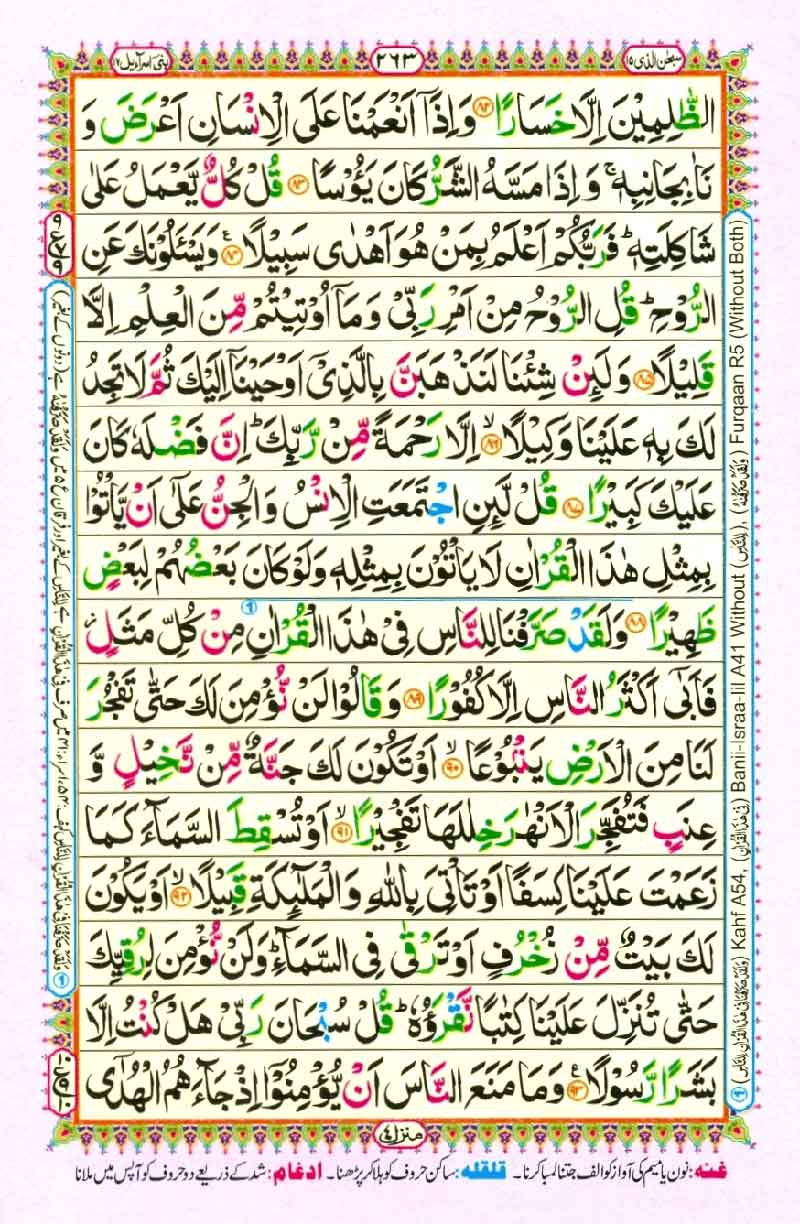 سبحن الذی ۱۵
۲۶۳
بنی اسرآءیل ۱۷
الظّٰلِمِیْنَ اِلَّا خَسَارًا ۝۸۲ وَ اِذَاۤ اَنْعَمْنَا عَلَی الْاِنْسَانِ اَعْرَضَ وَ
نَاٰ بِجَانِبِهٖ ۚ وَ اِذَا مَسَّهُ الشَّرُّ كَانَ یَـُٔوْسًا ۝۸۳ قُلْ كُلٌّ یَّعْمَلُ عَلٰی
شَاكِلَتِهٖ ؕ فَرَبُّكُمْ اَعْلَمُ بِمَنْ هُوَ اَهْدٰی سَبِیْلًا ۝۸۴ وَیَسْـَٔلُوْنَكَ عَنِ
الرُّوْحِ ؕ قُلِ الرُّوْحُ مِنْ اَمْرِ رَبِّیْ وَ مَاۤ اُوْتِیْتُمْ مِّنَ الْعِلْمِ اِلَّا
قَلِیْلًا ۝۸۵ وَ لَىِٕنْ شِئْنَا لَنَذْهَبَنَّ بِالَّذِیْۤ اَوْحَیْنَاۤ اِلَیْكَ ثُمَّ لَا تَجِدُ
لَكَ بِهٖ عَلَیْنَا وَكِیْلًا ۝۸۶ اِلَّا رَحْمَةً مِّنْ رَّبِّكَ ؕ اِنَّ فَضْلَهٗ كَانَ
عَلَیْكَ كَبِیْرًا ۝۸۷ قُلْ لَّىِٕنِ اجْتَمَعَتِ الْاِنْسُ وَ الْجِنُّ عَلٰۤی اَنْ یَّاْتُوْا
بِمِثْلِ هٰذَا الْقُرْاٰنِ لَا یَاْتُوْنَ بِمِثْلِهٖ وَ لَوْ كَانَ بَعْضُهُمْ لِبَعْضٍ
ظَهِیْرًا ۝۸۸ وَ لَقَدْ صَرَّفْنَا لِلنَّاسِ فِیْ هٰذَا الْقُرْاٰنِ مِنْ كُلِّ مَثَلٍ ؗ
فَاَبٰۤی اَكْثَرُ النَّاسِ اِلَّا كُفُوْرًا ۝۸۹ وَ قَالُوْا لَنْ نُّؤْمِنَ لَكَ حَتّٰی تَفْجُرَ
لَنَا مِنَ الْاَرْضِ یَنْۢبُوْعًا ۝۹۰ اَوْ تَكُوْنَ لَكَ جَنَّةٌ مِّنْ نَّخِیْلٍ وَّ
عِنَبٍ فَتُفَجِّرَ الْاَنْهٰرَ خِلٰلَهَا تَفْجِیْرًا ۝۹۱ اَوْ تُسْقِطَ السَّمَآءَ كَمَا
زَعَمْتَ عَلَیْنَا كِسَفًا اَوْ تَاْتِیَ بِاللّٰهِ وَ الْمَلٰٓىِٕكَةِ قَبِیْلًا ۝۹۲ اَوْ یَكُوْنَ
لَكَ بَیْتٌ مِّنْ زُخْرُفٍ اَوْ تَرْقٰی فِی السَّمَآءِ ؕ وَ لَنْ نُّؤْمِنَ لِرُقِیِّكَ
حَتّٰی تُنَزِّلَ عَلَیْنَا كِتٰبًا نَّقْرَؤُهٗ ؕ قُلْ سُبْحَانَ رَبِّیْ هَلْ كُنْتُ اِلَّا
بَشَرًا رَّسُوْلًا ۝۹۳ وَ مَا مَنَعَ النَّاسَ اَنْ یُّؤْمِنُوْۤا اِذْ جَآءَهُمُ الْهُدٰۤی
(وَلَقَدْ صَرَّفْنَا فِیْ هٰذَا الْقُرْاٰنِ لِلنَّاسِ) Kahf A54, (فِیْ هٰذَا الْقُرْاٰنِ) Bani-Israa-Iil A41 Without (لِلنَّاسِ), (وَلَقَدْ صَرَّفْنٰهُ) Furqaan R5 (Without Both)
منزل ۴
غنه: نون یا میم کی آواز کو الف جتنا لمبا کرنا۔ قلقله: ساکن حروف کو ہلا کر پڑھنا۔ ادغام: شد کے ذریعے دو حروف کو آپس میں ملانا